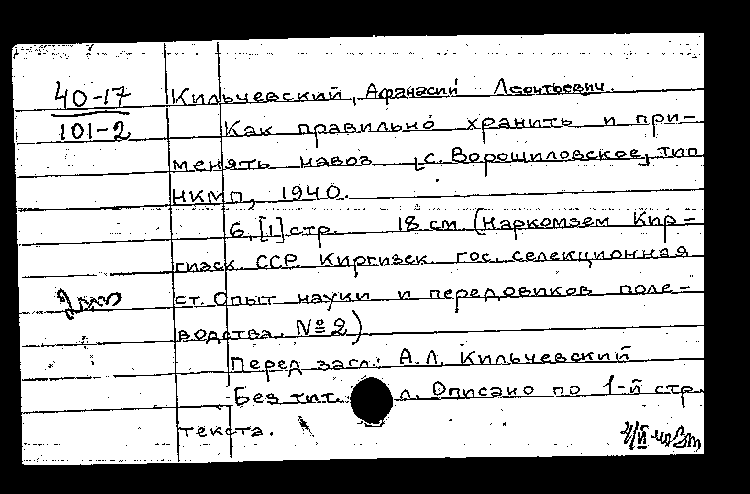 40-17
101-2
Кильчевский, Афанасий Леонтьевич.
Как правильно хранить и при-
менять навоз [с. Ворошиловское, тип
НКМП, 1940.
6, [1] стр. 18 см (Наркомзем Кир-
гизск. ССР. Киргизск. гос. селекционная
ст. Опыт науки и передовиков поле-
водства. № 2)
Перед загл.: А.Л. Кильчевский
Без тит. л. Описано по 1-й стр.
текста.